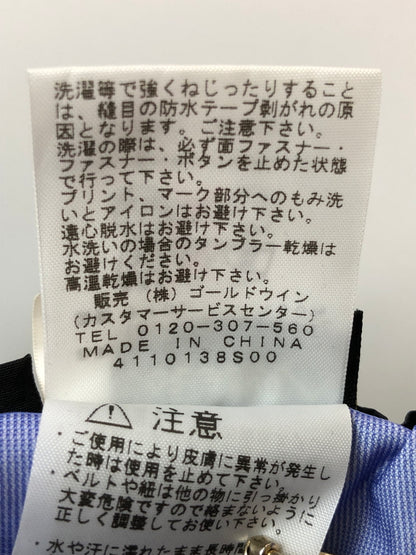 洗濯等で強くねじったりすること
は、縫目の防水テープ剥がれの原
因となります。ご注意下さい。
洗濯の際は、必ず面ファスナー・
ファスナー・ボタンを止めた状態
で行って下さい。
プリント、マーク部分へのもみ洗
いとアイロンはお避け下さい。
遠心脱水はお避け下さい。
水洗いの場合のタンブラー乾燥は
お避けください。
高温乾燥はお避け下さい。
販売 (株) ゴールドウイン
(カスタマーサービスセンター)
TEL 0120-307-560
MADE IN CHINA
4110138S00
注意
・ご使用により皮膚に異常が発生し
た時は使用を止めて下さい。
・ベルトや紐は他の物に引っ掛かり
大変危険ですので絡まないように
正しく調整してお使い下さい。
・水や汗に濡れたまま長時間